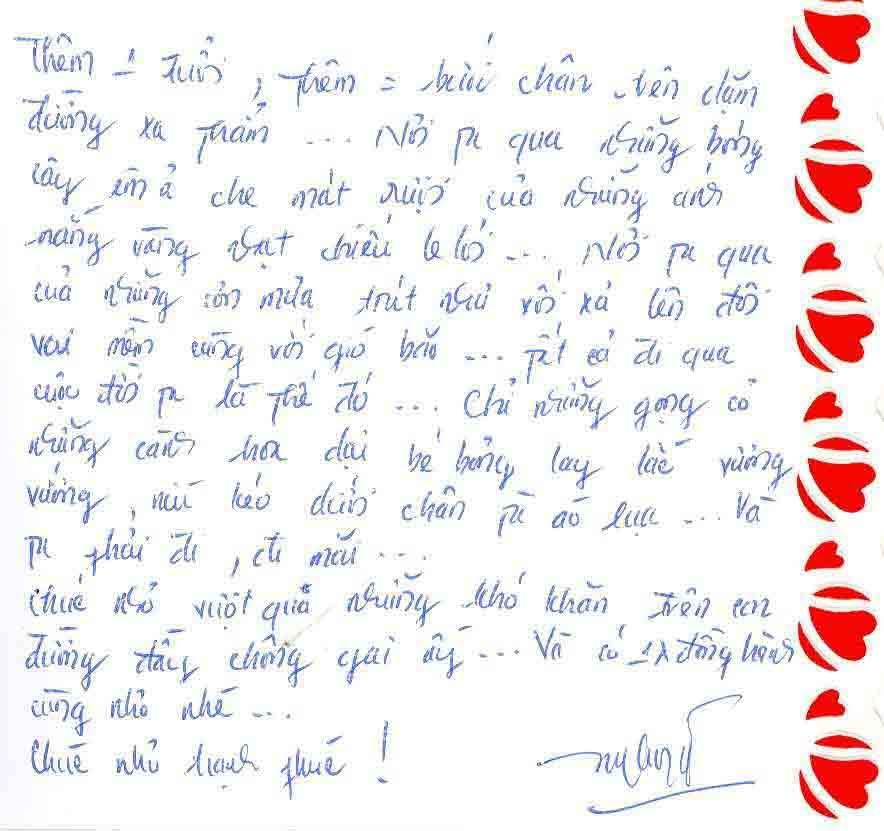 Thêm 1 tuổi, thêm = bước chân trên dặm
đường xa thẳm ... Nơi ta qua những bóng
cây êm ả che mát rượi của những ánh
nắng vàng nhạt chiều le lói ... Nơi ta qua
của những cơn mưa trút như xối xả lên đôi
vai mềm cùng với gió bão ... tất cả đi qua
cuộc đời ta là thế đó ... Chỉ những gọng cỏ
những cành hoa dại bé bỏng lay lắt vương
vướng, níu kéo dưới chân tà áo lụa ... Và
ta phải đi, đi mãi ...
Chúc nhỏ vượt qua những khó khăn trên con
đường đầy chông gai ấy ... Và có 1 đồng hành
cùng nhỏ nhé ...
Chúc nhỏ hạnh phúc!